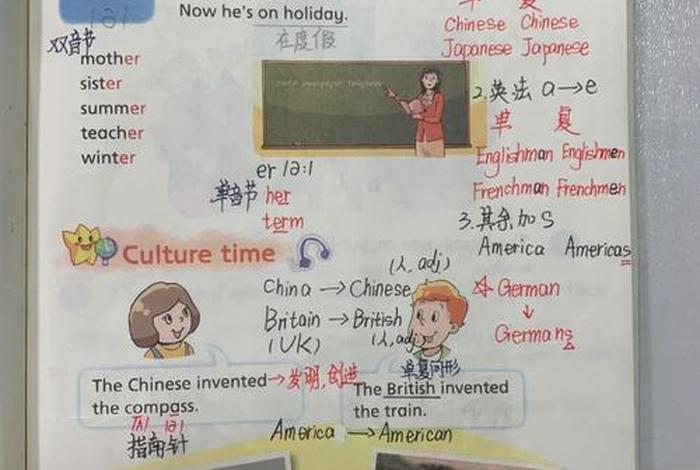 /ə/
Now he's on holiday.
在度假
单 复
Chinese Chinese
Japanese Japanese
双音节
mother
sister
summer
teacher
winter
2.英法 a→e
单 复
Englishman Englishmen
Frenchman Frenchmen
er /ə:/
单音节 her
term
3.其余加s
America Americas
Culture time
(人, adj)
China → Chinese
German
↓
Germans
Britain → British
(UK) (人, adj)
单复同形
The Chinese invented→发明,创造
the compass.
The British invented
the train.
/ʌ/ /ə/
指南针
America → American